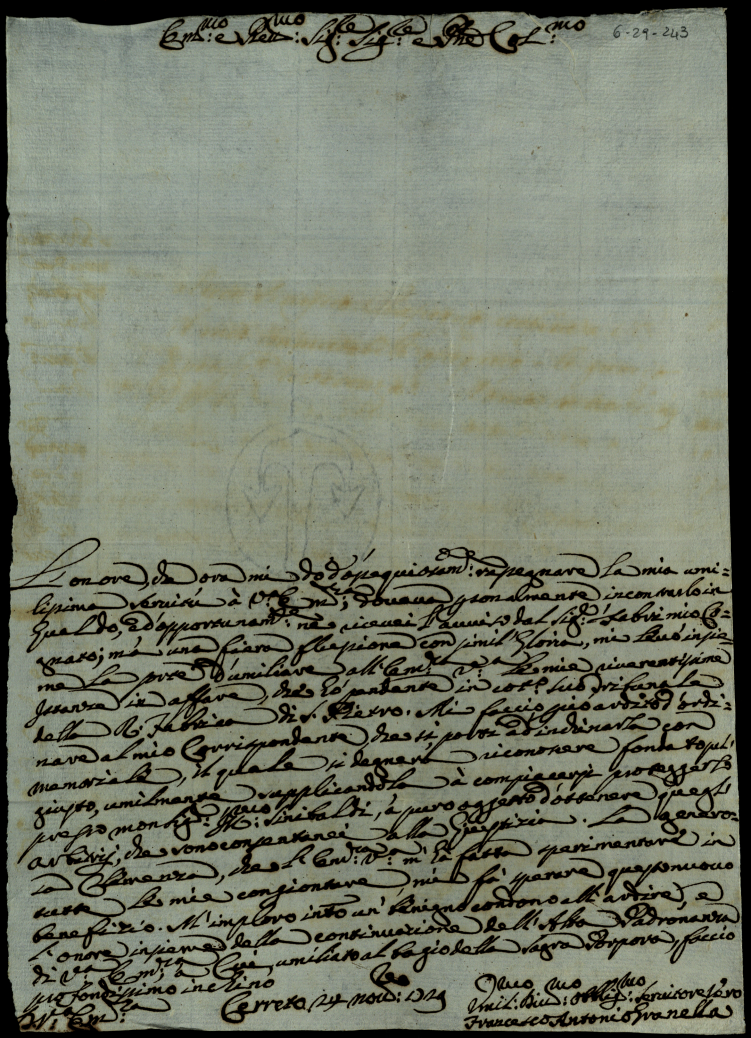 Em:mo e Rev:mo Sig:re Sig:re e Pne Col:mo
6-29-243
L'onore, che ora mi dò d'ossequiosam:e rassegnare la mia umi-
lissima servitù à V:ra Em:za, doveva personalmente incontrarlo in
Gualdo, ed opportunam:te ne ricevei l'avviso dal Sig:r Fabri mio Co-
gnato; mà una fiera flussione con simil Gloria, mi levò insie-
me la sorte d'umiliare all'Em:za V:ra le mie riverentissime
Istanze in affare, che hò pendente in cot:o suo Tribunale
della R. Fabrica di S. Pietro. Mi faccio però ardito d'ordi-
nare al mio Corrispondente, che si porti ad inchinarla con
memoriale, il quale si degnerà riconoscere fondato sul
giusto, umilmente supplicandola à compiacersi proteggerlo
presso monsig:r Sinibaldi, à puro oggetto d'ottenere quegl'
arbitrij, che sono consentanei alla Giustizia. La genero-
sa Clemenza, che l'Em:za V:ra m'hà fatta sperimentare in
tutte le mie congionture, mi fà sperare questo nuovo
benefizio. M'imploro intanto un benigno condono all'ardire, e
l'onore insieme della continuazione dell'Alta Padronanza
di V:ra Em:za, a Cui, umiliato al bagio della Sagra Porpora, faccio
profondissimo inchino
D. V:ra Em:za
Cerreto 24 nov:bre 1729
Umil:mo Div:mo Oblig:mo Servitore Vero
Francesco Antonio Granella